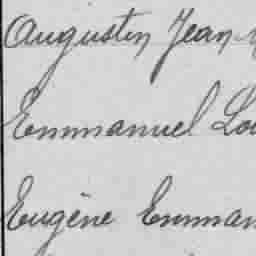 Augustin Jean
Emmanuel Lou
Eugène Emman